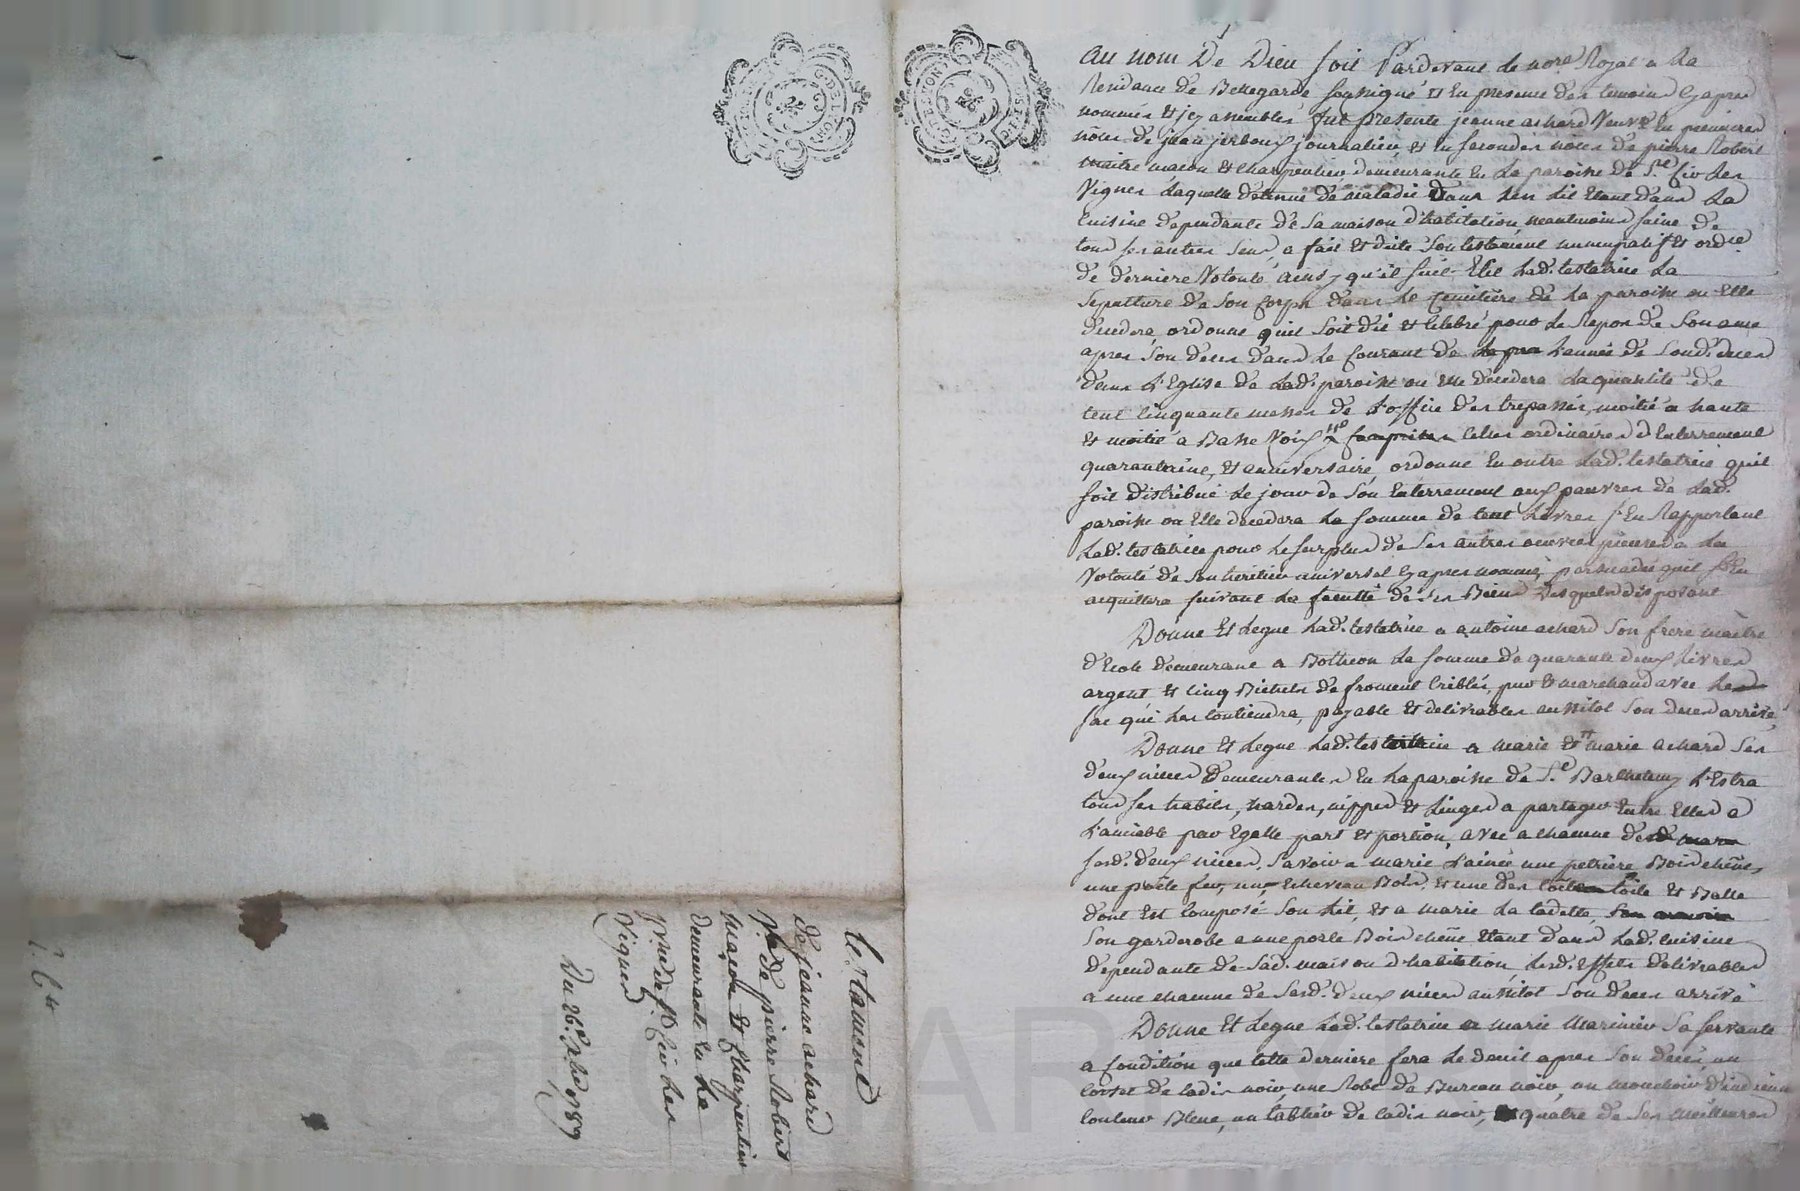 Testament
de jeanne achard
Ve. de pierre Robert
maçon et Charpentier
demeurante en La
psse. de St. Cir Les
Vignes
Du 26e. 7bre 1789
Au nom De Dieu soit Pardevant le nore. Royal a La
Residance de Bellegarde soussigné et en presence des temoins Cy apres
nommés et icy assemblés fut presente jeanne achard Veuve en premieres
nôces de jean journalier, et en secondes nôces de pierre Robert
maitre macon et charpentier, demeurante en La paroisse de St. Cir Les
Vignes Laquelle détenue de maladie dans son Lit Etant dans La
Cuisine dependante de Sa maison d'habitation, neantmoins saine de
tous ses autres sens, a fait et dicté Son testament nuncupatif et ordce.
de derniere Volonté ainsy qu'il suit Elit Lad. testatrice La
Sepulture de Son Corps dans Le Cemitière de La paroisse ou Elle
decedera, ordonne qu'il Soit dit et Celebré pour Le Repos de Son ame
apres Son deces dans Le Courant de L'année de Sond. deces
dans L'Eglise de Lad. paroisse ou Elle decedera La quantité de
Cent Cinquante messes de L'office des trepassés, moitié a haute
et moitié a Basse Voix, Celles ordinaires d'Enterrement
quarantaine, et anniversaire, ordonne En outre Lad. testatrice qu'il
soit distribué Le jour de Son Enterrement aux pauvres de Lad.
paroisse ou Elle decedera La somme de Cent Livres s'En Rapportant
Lad. testatrice pour Le surplus de Ses autres oeuvres pieuses a La
Volonté de Son heritier universel Cy apres nommé, persuadée qu'il s'En
acquittera suivant La faculté de Ses Biens Desquels disposant
Donne Et Legue Lad. testatrice a antoine achard Son frere maitre
d'Ecole demeurant a Botheon La somme de quarante deux Livres
argent et Cinq Bichets de froment Criblés, pur et marchand avec Le
sac qui Les Contiendra, payable et delivrables aussitot Son deces arrivé
Donne Et Legue Lad. testatrice a marie et marie achard Ses
deux nieces demeurantes En La paroisse de St. Barthelemy L'Estra
tous ses habits, hardes, nippes et Linges a partager Entre Elles a
L'amiable par Egalle part et portion, avec a chacune de
sesd. deux nieces, Savoir a marie L'ainée une petrière Bois chêne,
une poële feu, un Echeveau Bois, et une des toile et Balle
dont Est Composé Son Lit, et a marie La Cadette,
Son garderobe a une porte Bois chêne Etant dans Lad. Cuisine
dependante de Sad. maison d'habitation, Lesd. effets delivrables
a une chacune de Sesd. deux nieces aussitot Son deces arrivé
Donne Et Legue Lad. testatrice a marie Marinier Sa servante
a Condition que Cette derniere fera Le deuil apres Son deces, un
Corset de Cadis noir, une Robe de Bureau noir, un mouchoir d'indienne
Couleur Bleue, un tablier de Cadis noir, quatre de Ses meilleures